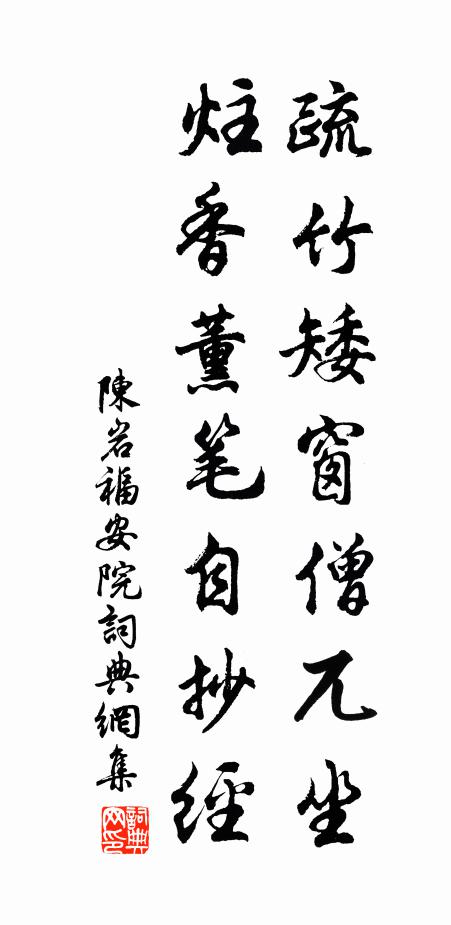 疏竹矮窗僧兀坐
炷香薰笔自抄經
陳岩福安院詞典網集
詞典网印